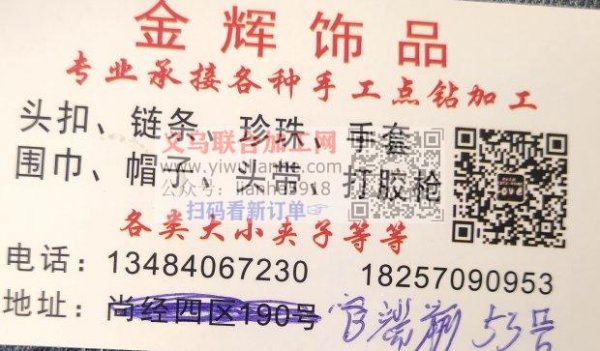 金辉饰品
专业承接各种手工点钻加工
头扣、链条、珍珠、手套
义乌联合加工网
www.yiwulianhe.com
围巾、帽子、头带、打胶枪
公众号：lianhe8918
扫码看新订单👉
各类大小夹子等等
电话：13484067230 18257090953
地址：尚经四区190号 官 53号